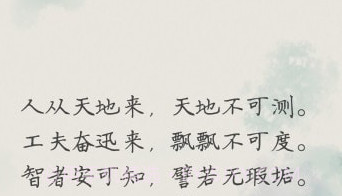 人从天地来，天地不可测。
工夫奋迅来，飘飘不可度。
智者安可知，譬若无瑕垢。